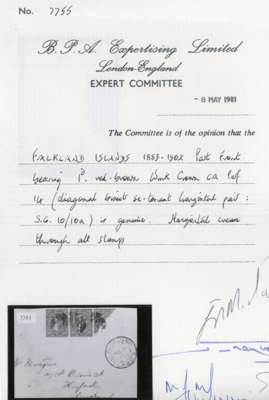 No. 7755
B.P.A. Expertising Limited
London-England
EXPERT COMMITTEE
- 8 MAY 1981
The Committee is of the opinion that the
FALKLAND ISLANDS 1883-1902 Part Front
bearing 1d. red-brown Wmk Crown CA Perf
14 (diagonal bisects se-tenant marginal pair :
S.G. 10/10a) is genuine. Horizontal crease
through all stamps
7755